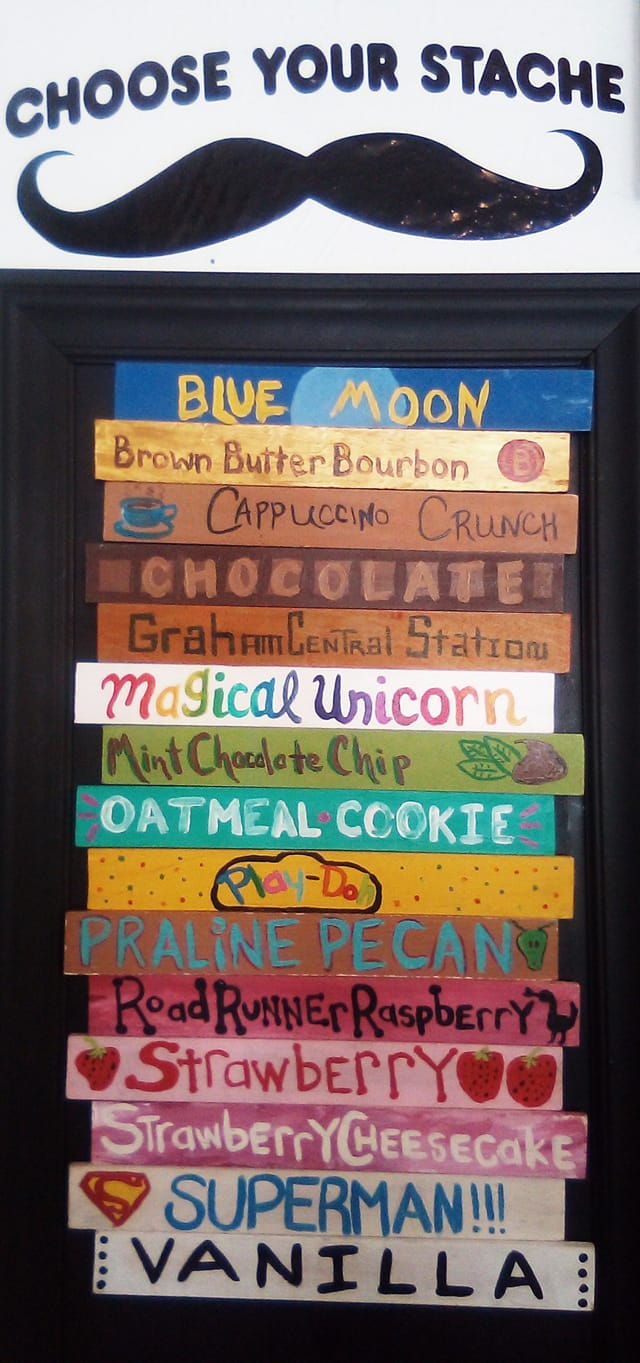 CHOOSE YOUR STACHE
BLUE MOON
Brown Butter Bourbon B
CAPPUCCINO CRUNCH
CHOCOLATE
Graham CENTRal Station
Magical Unicorn
Mint Chocolate Chip
OATMEAL·COOKIE
Play-Doh
PRALiNE PECAN
RoadRUNNErRaspberrY
StrawbErrY
StrawberrY CHEESECaKE
S SUPERMAN!!!
VANILLA